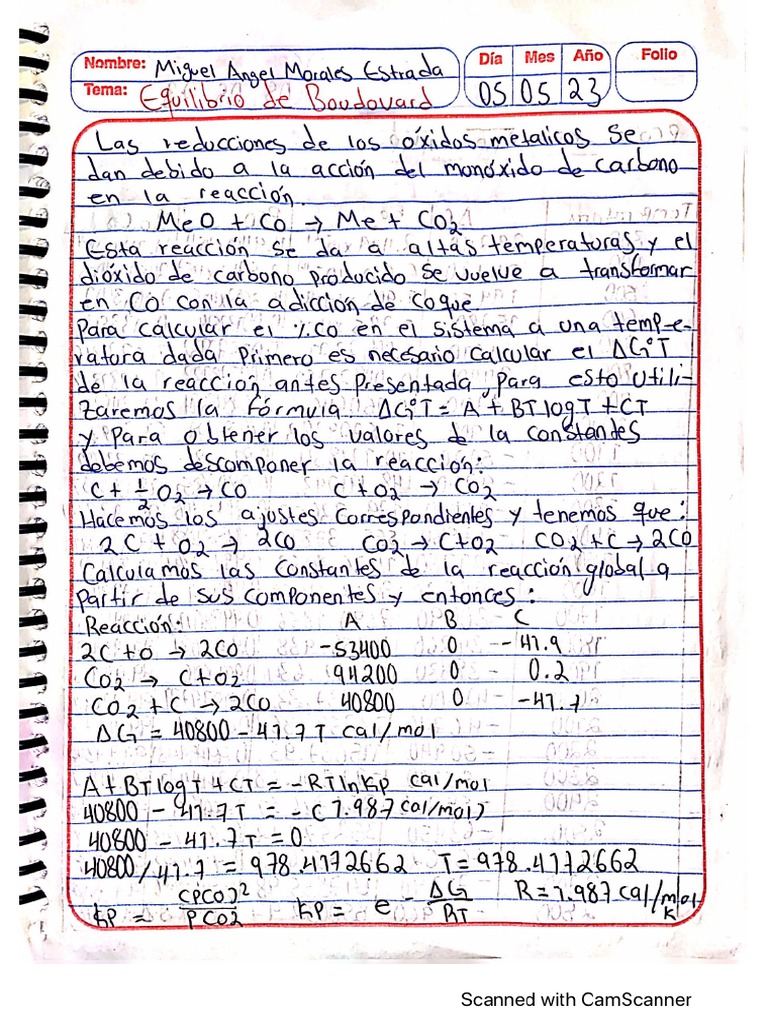 Nombre: Miguel Angel Morales Estrada
Día Mes Año Folio
Tema: Equilibrio de Boudouard
05 05 23
Las reducciones de los óxidos metalicos se
dan debido a la acción del monóxido de carbono
en la reacción.
MeO + Co → Me + CO2
Esta reacción se da a altas temperaturas y el
dióxido de carbono producido se vuelve a transformar
en CO con la adiccion de coque
Para calcular el %CO en el sistema a una tempe-
ratura dada primero es necesario calcular el ΔG°T
de la reacción antes presentada, para esto utili-
zaremos la fórmula ΔG°T = A + BT log T + CT
y para obtener los valores de la constantes
debemos descomponer la reacción:
C + 1/2 O2 → CO C + O2 → CO2
Hacemos los ajustes correspondientes y tenemos que:
2C + O2 → 2CO CO2 → C+O2 CO2 + C → 2CO
Calculamos las constantes de la reacción global a
partir de sus componentes y entonces:
Reacción: A B C
2C + O → 2CO -53400 0 -41.9
CO2 → C+O2 94200 0 0.2
CO2 + C → 2CO 40800 0 -41.7
ΔG = 40800 - 41.7 T cal/mol
A + BT log T + CT = -RT ln Kp cal/mol
40800 - 41.7 T = -(1.987 cal/mol)
40800 - 41.7 T = 0
40800 / 41.7 = 978.4172662 T = 978.4172662
Kp = (PCO)2 / PCO2 Kp = e - ΔG/RT R = 1.987 cal/mol K
Scanned with CamScanner